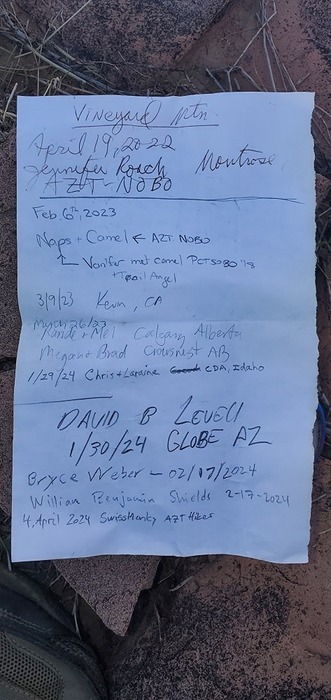 Vineyard Mtn.
April 19, 2022
Jennifer Roach Montrose
AZT-NOBO
Feb 6th, 2023
Naps + Camel ← AZT NOBO
Vonifer met camel PCT SOBO '18
+ Trail Angel
3/9/23 Kevin, CA
26/23
+ Mel Calgary Alberta
Megan + Brad Crowsnest AB
1/29/24 Chris + Laraine CDA, Idaho
DAVID B
1/30/24 GLOBE AZ
Bryce Weber - 02/17/2024
Willian Benjamin Shields 2-17-2024
4. April 2024 SwissMonky AZT Hiker